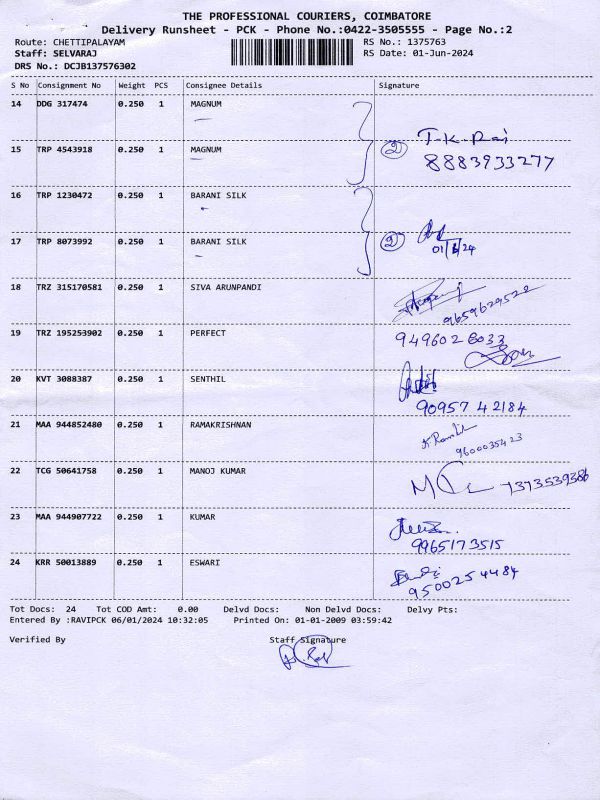 THE PROFESSIONAL COURIERS, COIMBATORE
Delivery Runsheet - PCK - Phone No.:0422-3505555 - Page No.:2
Route: CHETTIPALAYAM RS No.: 1375763
Staff: SELVARAJ RS Date: 01-Jun-2024
DRS No.: DCJB137576302
S No Consignment No Weight PCS Consignee Details Signature
14 DDG 317474 0.250 1 MAGNUM
15 TRP 4543918 0.250 1 MAGNUM 2 T-K-Rai
8883933277
16 TRP 1230472 0.250 1 BARANI SILK
17 TRP 8073992 0.250 1 BARANI SILK 2
01/6/24
18 TRZ 315170581 0.250 1 SIVA ARUNPANDI
9659629522
19 TRZ 195253902 0.250 1 PERFECT 949602 8033
20 KVT 3088387 0.250 1 SENTHIL
90957 42184
21 MAA 944852480 0.250 1 RAMAKRISHNAN
9600035423
22 TCG 50641758 0.250 1 MANOJ KUMAR 7373539386
23 MAA 944907722 0.250 1 KUMAR
9965173515
24 KRR 50013889 0.250 1 ESWARI
9500254484
Tot Docs: 24 Tot COD Amt: 0.00 Delvd Docs: Non Delvd Docs: Delvy Pts:
Entered By :RAVIPCK 06/01/2024 10:32:05 Printed On: 01-01-2009 03:59:42
Verified By Staff Signature